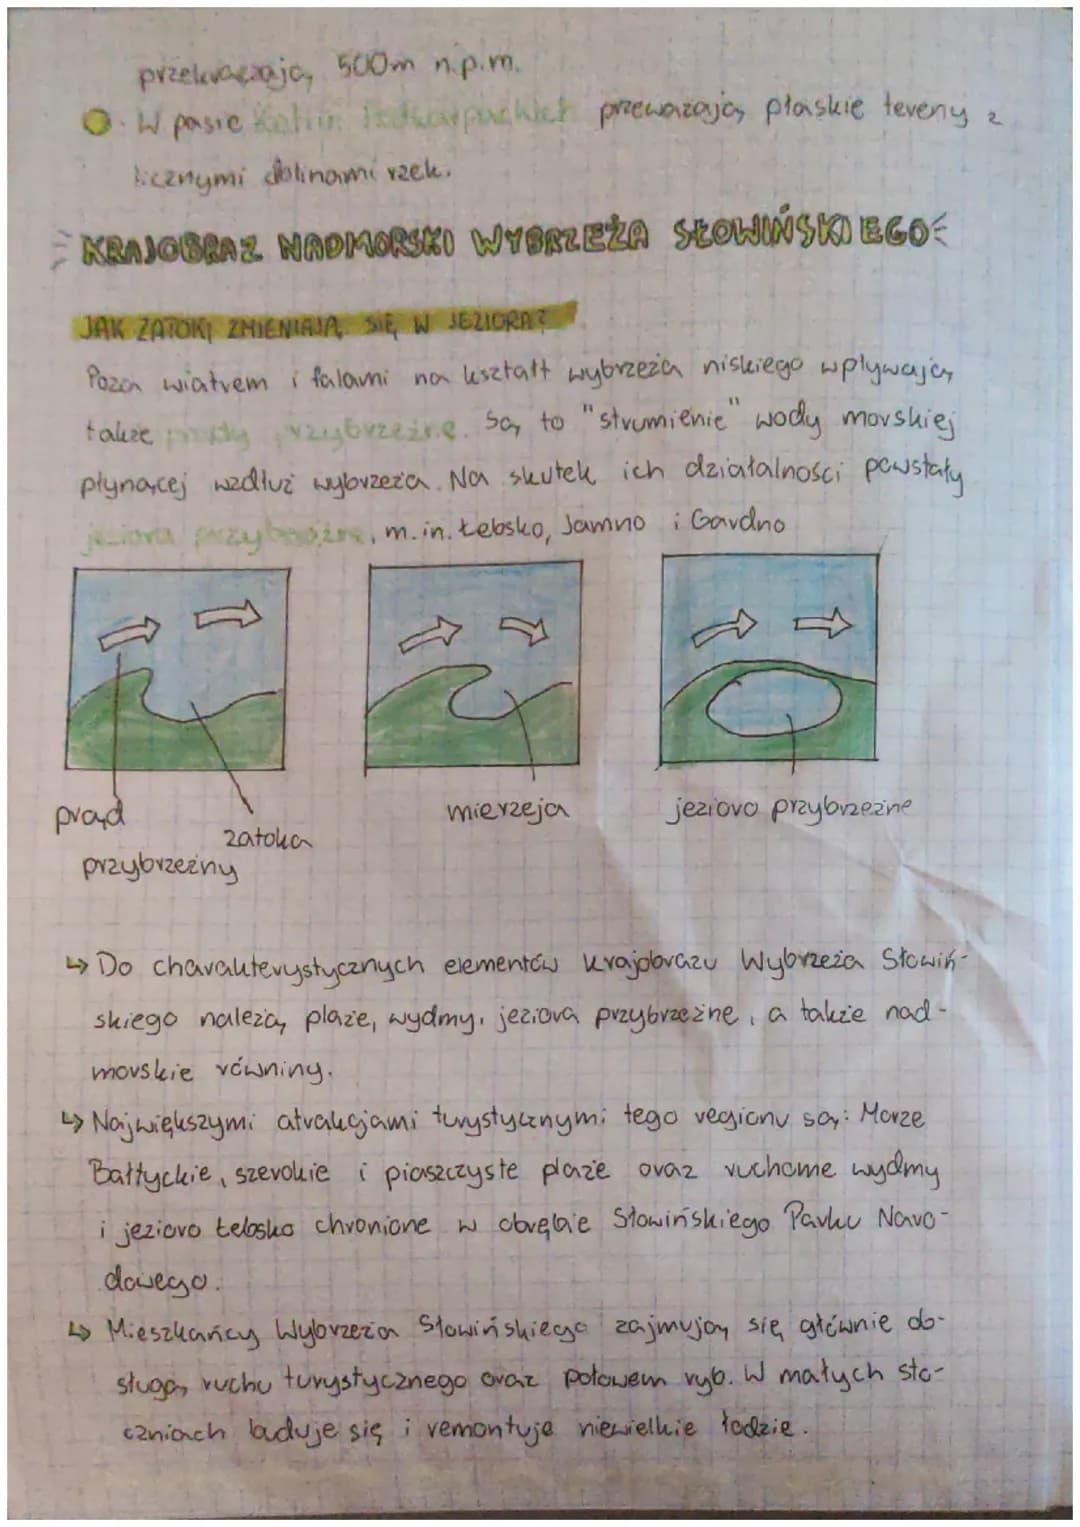 przekraczają 500m n.p.m.
W pasie Kotlin Podkarpackich przeważają płaskie tereny z
licznymi dolinami rzek.
KRAJOBRAZ NADMORSKI WYBRZEŻA SŁOWIŃSKIEGO
JAK ZATOKI ZMIENIAJĄ SIĘ W JEZIORA?
Poza wiatrem i falami na kształt wybrzeża niskiego wpływają
także prądy przybrzeżne. Są to "strumienie" wody morskiej
płynącej wzdłuż wybrzeża. Na skutek ich działalności powstały
jeziora przybrzeżne, m.in. Łebsko, Jamno i Gardno
prąd
przybrzeżny
zatoka
mierzeja
jezioro przybrzeżne
↳ Do charakterystycznych elementów krajobrazu Wybrzeża Słowiń-
skiego należą plaże, wydmy, jeziora przybrzeżne, a także nad-
morskie równiny.
↳ Największymi atrakcjami turystycznymi tego regionu są: Morze
Bałtyckie, szerokie i piaszczyste plaże oraz ruchome wydmy
i jezioro Łebsko chronione w obrębie Słowińskiego Parku Naro-
dowego.
↳ Mieszkańcy Wybrzeża Słowińskiego zajmują się głównie ob-
sługą ruchu turystycznego oraz połowem ryb. W małych sto-
czniach buduje się i remontuje niewielkie łodzie.